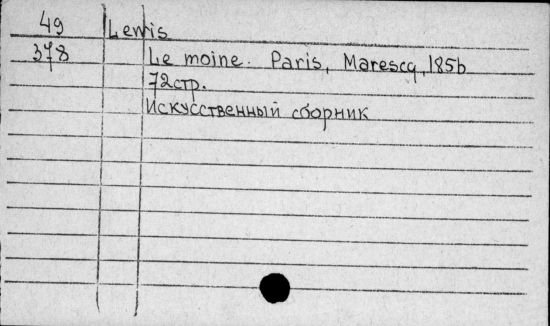 49 Lewis
378 Le moine. Paris, Marescq, 1856
72стр.
Искусственный сборник